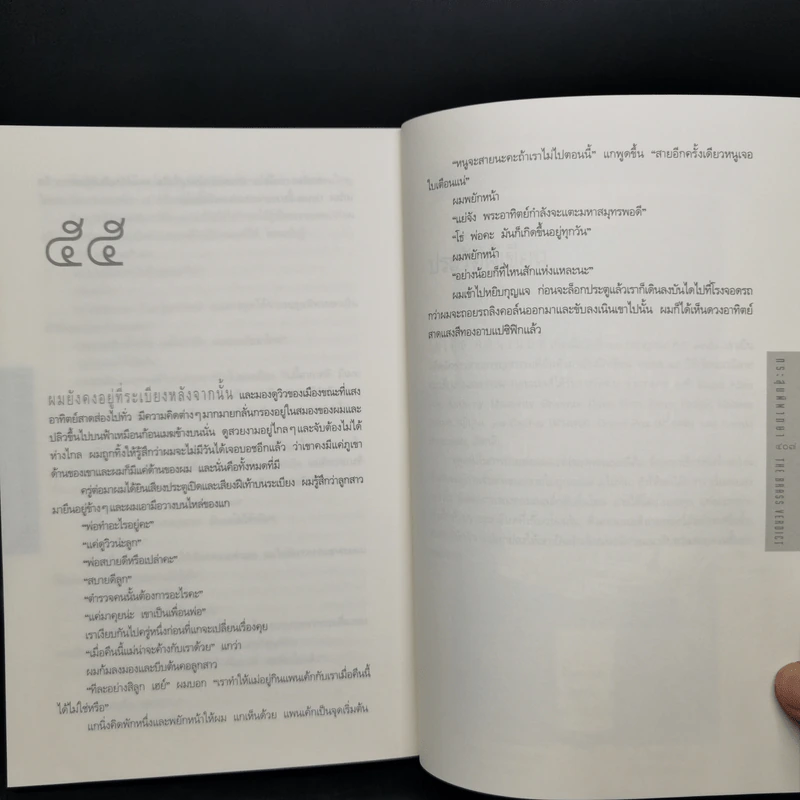 ๕๕
ผมยังคงอยู่ที่ระเบียงหลังจากนั้น และมองดูวิวของเมืองขณะที่แสง
อาทิตย์สาดส่องไปทั่ว มีความคิดต่างๆ มากมายกลั่นกรองอยู่ในสมองของผมและ
ปลิวขึ้นไปบนฟ้าเหมือนก้อนเมฆข้างบนนั่น ดูสวยงามอยู่ไกลๆ และจับต้องไม่ได้
ห่างไกล ผมถูกทิ้งให้รู้สึกว่าผมจะไม่มีวันได้เจอบอชอีกแล้ว ว่าเขาคงมีแค่ภูเขา
ด้านของเขาและผมก็มีแค่ด้านของผม และนั่นคือทั้งหมดที่มี
ครู่ต่อมาผมได้ยินเสียงประตูเปิดและเสียงฝีเท้าบนระเบียง ผมรู้สึกว่าลูกสาว
มายืนอยู่ข้างๆ และผมเอามือวางบนไหล่ของแก
“พ่อทำอะไรอยู่คะ”
“แค่ดูวิวน่ะลูก”
“พ่อสบายดีหรือเปล่าคะ”
“สบายดีลูก”
“ตำรวจคนนั้นต้องการอะไรคะ”
“แค่มาคุยน่ะ เขาเป็นเพื่อนพ่อ”
เราเงียบกันไปครู่หนึ่งก่อนที่แกจะเปลี่ยนเรื่องคุย
“เมื่อคืนนี้แม่น่าจะค้างกับเราด้วย” แกว่า
ผมก้มลงมองและบีบต้นคอลูกสาว
“ทีละอย่างสิลูก เฮย์” ผมบอก “เราทำให้แม่อยู่กินแพนเค้กกับเราเมื่อคืนนี้
ได้ไม่ใช่หรือ”
แกนิ่งคิดพักหนึ่งและพยักหน้าให้ผม แกเห็นด้วย แพนเค้กเป็นจุดเริ่มต้น
“หนูจะสายนะคะถ้าเราไม่ไปตอนนี้” แกพูดขึ้น “สายอีกครั้งเดียวหนูเจอ
ใบเตือนแน่”
ผมพยักหน้า
“แย่จัง พระอาทิตย์กำลังจะแตะมหาสมุทรพอดี”
“โธ่ พ่อคะ มันก็เกิดขึ้นอยู่ทุกวัน”
ผมพยักหน้า
“อย่างน้อยก็ที่ไหนสักแห่งแหละนะ”
ผมเข้าไปหยิบกุญแจ ก่อนจะล็อกประตูแล้วเราก็เดินลงบันไดไปที่โรงจอดรถ
กว่าผมจะถอยรถลิงคอล์นออกมาและขับลงเนินเขาไปนั้น ผมก็ได้เห็นดวงอาทิตย์
สาดแสงสีทองอาบแปซิฟิกแล้ว
THE BRASS VERDICT